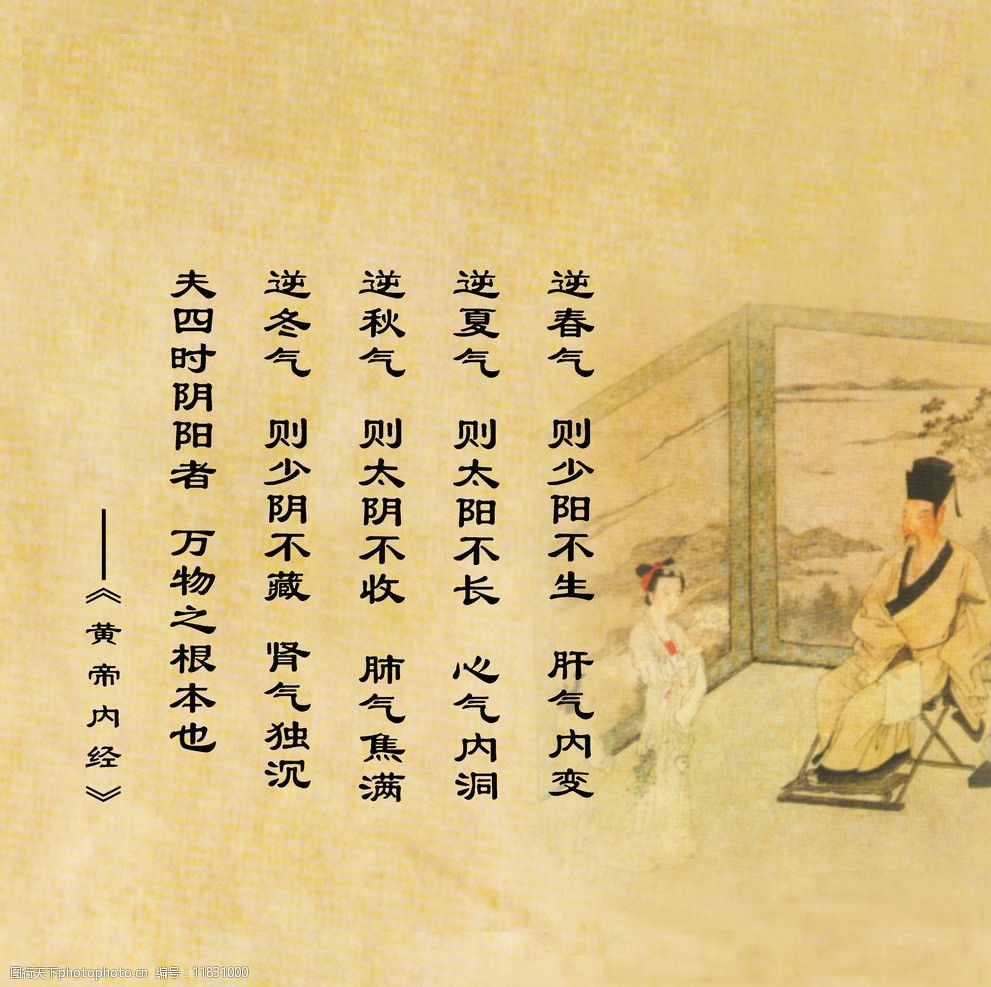 逆春气 则少阳不生 肝气内变
逆夏气 则太阳不长 心气内洞
逆秋气 则太阴不收 肺气焦满
逆冬气 则少阴不藏 肾气独沉
夫四时阴阳者 万物之根本也
——《黄帝内经》
图行天下photophoto.cn 编号:11831000